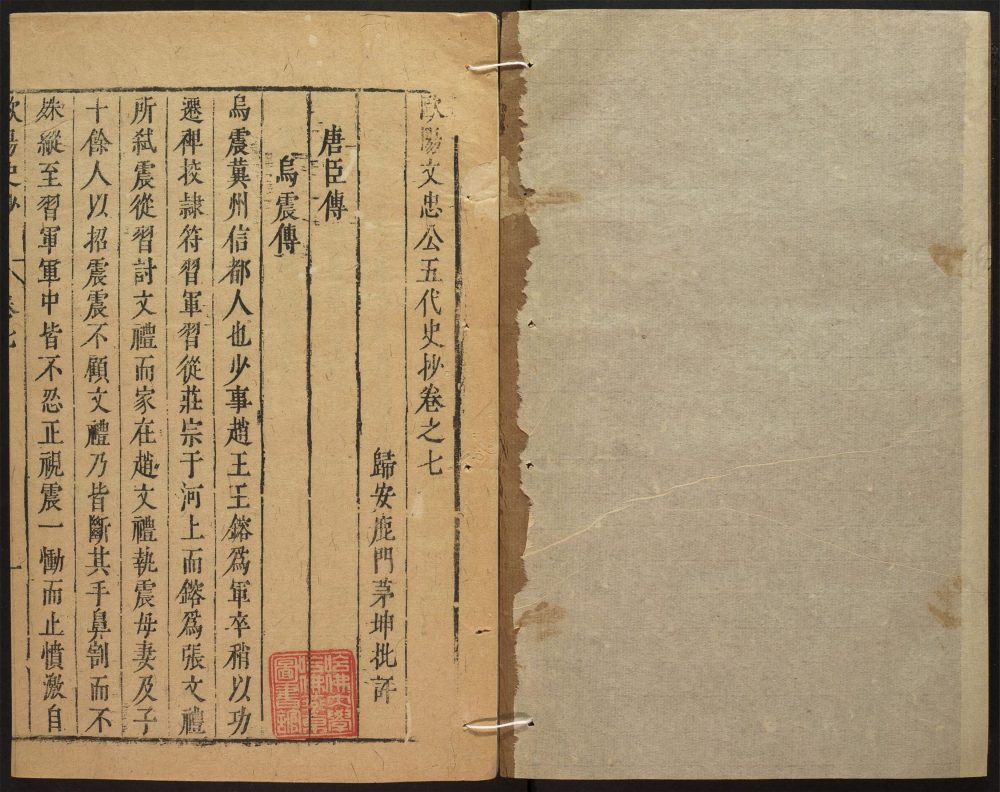 歐陽文忠公五代史抄卷之七
歸安鹿門茅坤批評
唐臣傳
烏震傳
烏震冀州信都人也少事趙王王鎔爲軍卒稍以功
遷裨挍隷符習軍習從莊宗于河上而鎔爲張文禮
所弑震從習討文禮而家在趙文禮執震母妻及子
十餘人以招震震不顧文禮乃皆斷其手鼻割而不
殊縱至習軍軍中皆不忍正視震一慟而止憤激自
歐陽史抄 卷七 一
哈佛大學
哈佛燕京
圖書館